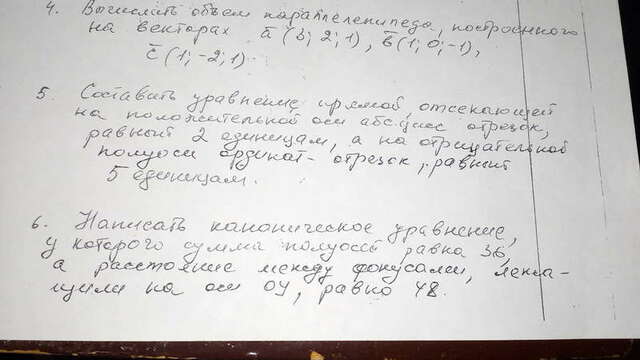 4. Вычислить объем параллелепипеда, построенного
на векторах ā (3; 2; 1), b̄ (1; 0; -1),
c̄ (1; -2; 1).
5. Составить уравнение прямой, отсекающей
на положительной оси абсцисс отрезок,
равный 2 единицам, а на отрицательной
полуоси ординат - отрезок, равный
5 единицам.
6. Написать каноническое уравнение,
у которого сумма полуосей равна 36,
а расстояние между фокусами, лежа-
щими на оси OY, равно 48.